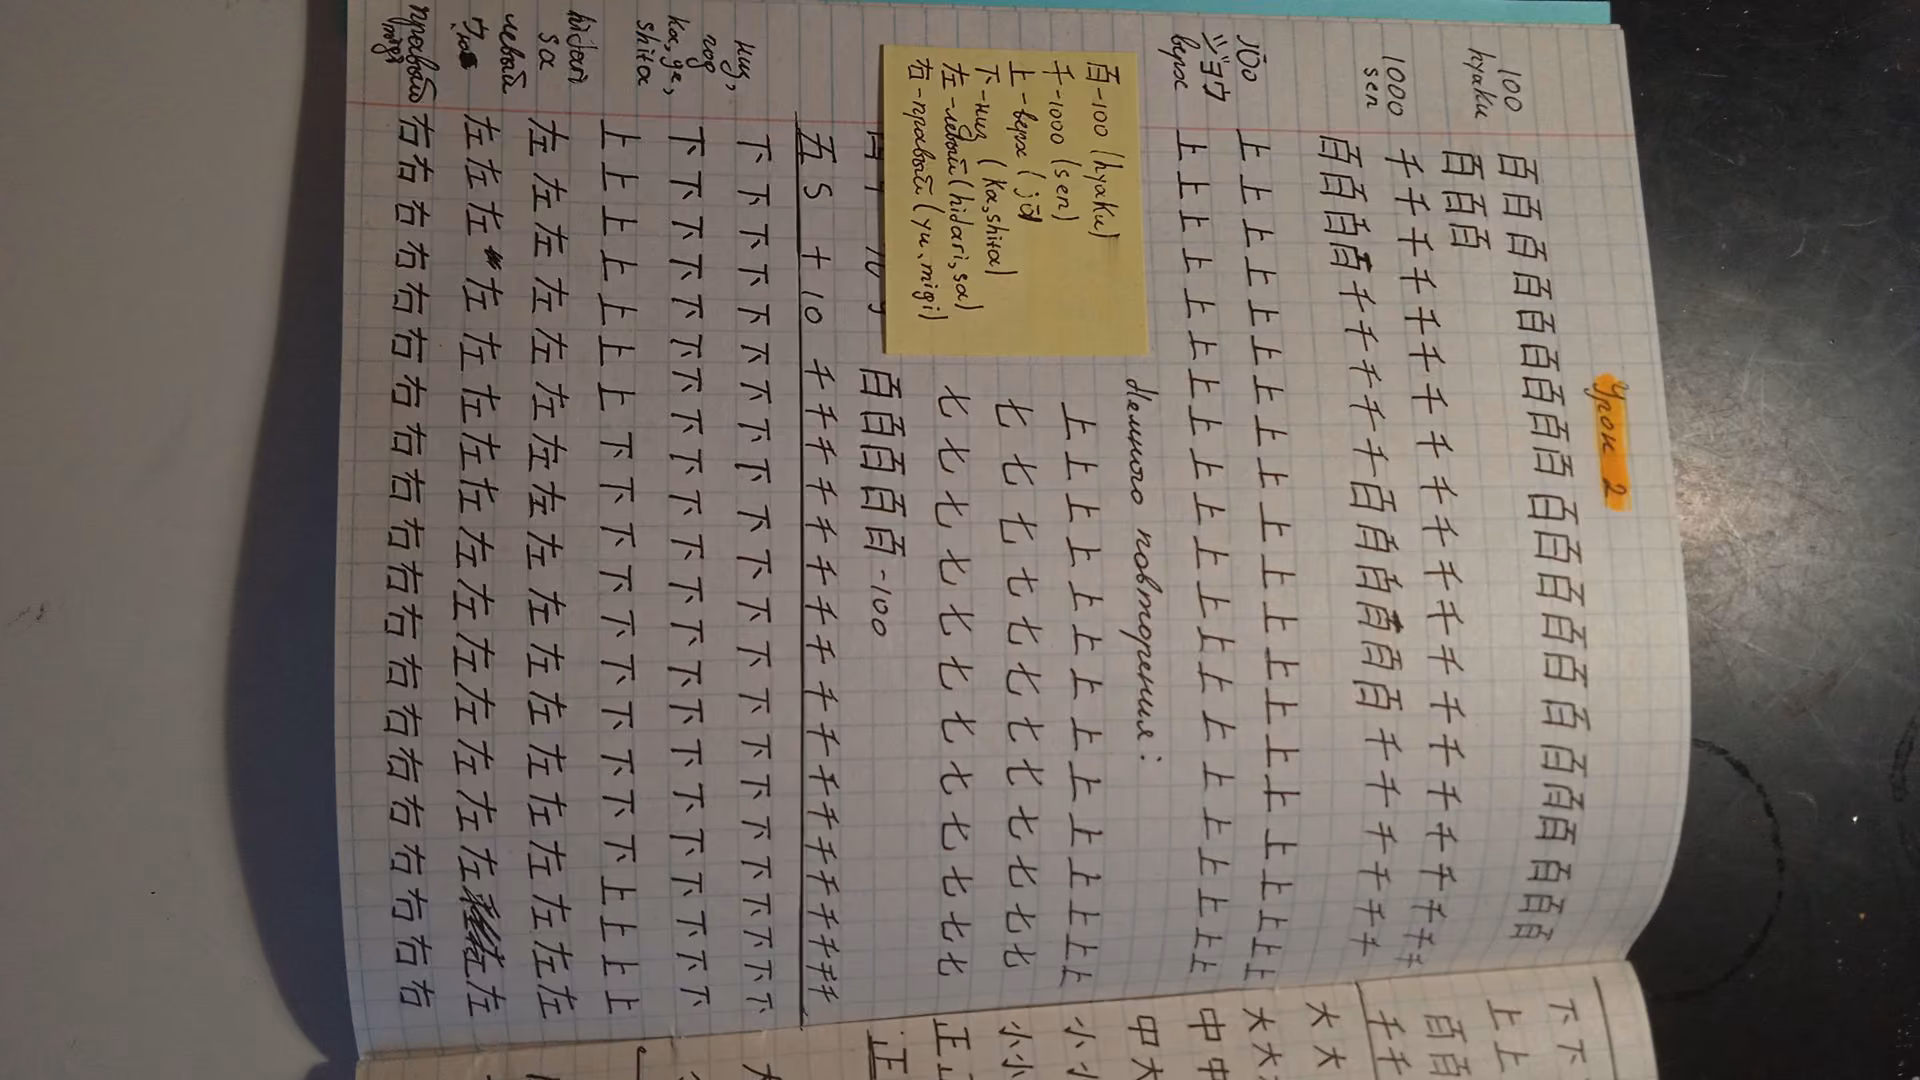 Урок 2
100 百百百百百百百百百百百百百百百百百百百
hyaku 百百百
1000 千千千千千千千千千千千千千千千千千千千千
sen 百百百百千千千千千百百百百百百千千千千千千
jōo 上上上上上上上上上上上上上上上上上上上上
ジョウ
верх 上上上上上上上上上上上上上上上上上上上上
百-100 (hyaku)
千-1000 (sen)
上-верх (jō)
下-низ (ka, shita)
左-левый (hidari, sa)
右-правый (yu, migi)
Немного повторения:
上上上上上上上上上上上上上
七七七七七七七七七七七
七七七七七七七七七七七七
百百百百百-100
五 5 十 10 千千千千千千千千千千千千千千千千千
низ, 下下下下下下下下下下下下下下下下下下下下
под
ka, ge, 下下下下下下下下下下下下下下下下下下下下
shita 上上上上上上上下下下下下下下下下下上上上上
hidari
sa 左左左左左左左左左左左左左左左左左左
левый
左左左左左左左左左左左左左左左左左
правый 右右右右右右右右右右右右右右右右右右右右右
migi
下下
上上
百百
千千
大大
大大
中中
中大
小小
小小
正正
正